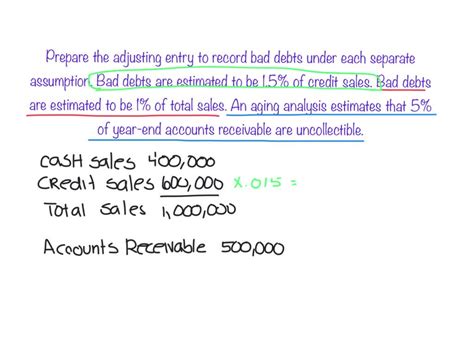 Prepare the adjusting entry to record bad debts under each separate
assumption. Bad debts are estimated to be 1.5% of credit sales. Bad debts
are estimated to be 1% of total sales. An aging analysis estimates that 5%
of year-end accounts receivable are uncollectible.
Cash sales 400,000
Credit sales 600,000 x.015 =
Total sales 1,000,000
Accounts Receivable 500,000